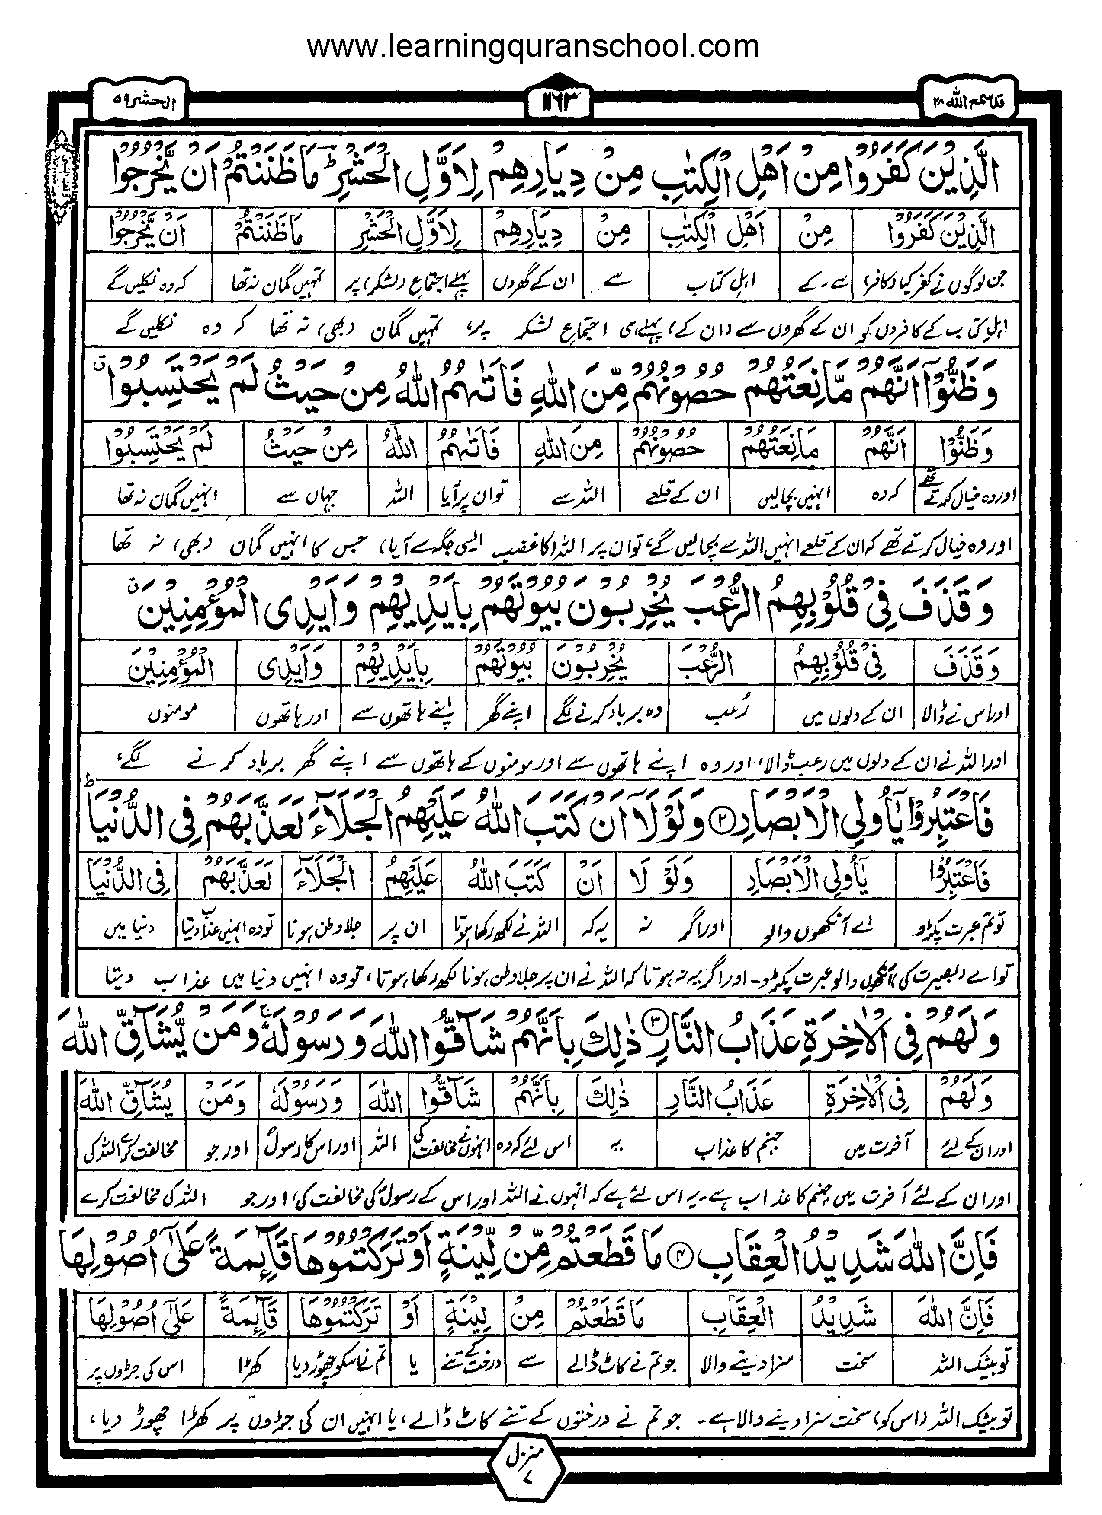 www.learningquranschool.com
قد سمع الله ۲۸
۱۱۶۳
الحشر ۵۹
الَّذِیْنَ كَفَرُوْا مِنْ اَهْلِ الْكِتٰبِ مِنْ دِیَارِهِمْ لِاَوَّلِ الْحَشْرِ ؕ مَا ظَنَنْتُمْ اَنْ یَّخْرُجُوْا
الَّذِیْنَ كَفَرُوْا مِنْ اَهْلِ الْكِتٰبِ مِنْ دِیَارِهِمْ لِاَوَّلِ الْحَشْرِ مَا ظَنَنْتُمْ اَنْ یَّخْرُجُوْا
جن لوگوں نے کفر کیا (کافر) سے۔ کے اہل کتاب سے ان کے گھروں پہلے اجتماع (لشکر) پر تمہیں گمان نہ تھا کہ وہ نکلیں گے
اہل کتاب کے کافروں کو ان کے گھروں سے (ان کے) پہلے ہی اجتماع لشکر پر، تمہیں گمان (بھی) نہ تھا کہ وہ نکلیں گے
وَظَنُّوْۤا اَنَّهُمْ مَّانِعَتُهُمْ حُصُوْنُهُمْ مِّنَ اللهِ فَاَتٰىهُمُ اللهُ مِنْ حَیْثُ لَمْ یَحْتَسِبُوْا ۗ
وَظَنُّوْۤا اَنَّهُمْ مَّانِعَتُهُمْ حُصُوْنُهُمْ مِنَ اللهِ فَاَتٰىهُمُ اللهُ مِنْ حَیْثُ لَمْ یَحْتَسِبُوْا
اور وہ خیال کرتے تھے کہ وہ انہیں بچالیں ان کے قلعے اللہ سے تو ان پر آیا اللہ جہاں سے انہیں گمان نہ تھا
اور وہ خیال کرتے تھے کہ ان کے قلعے انہیں اللہ سے بچالیں گے، تو ان پر اللہ کا غضب ایسی جگہ سے آیا، جس کا انہیں گمان (بھی) نہ تھا
وَقَذَفَ فِیْ قُلُوْبِهِمُ الرُّعْبَ یُخْرِبُوْنَ بُیُوْتَهُمْ بِاَیْدِیْهِمْ وَاَیْدِی الْمُؤْمِنِیْنَ ۗ
وَقَذَفَ فِیْ قُلُوْبِهِمُ الرُّعْبَ یُخْرِبُوْنَ بُیُوْتَهُمْ بِاَیْدِیْهِمْ وَاَیْدِی الْمُؤْمِنِیْنَ
اور اس نے ڈالا ان کے دلوں میں رُعب وہ برباد کرنے لگے اپنے گھر اپنے ہاتھوں سے اور ہاتھوں مومنوں
اور اللہ نے ان کے دلوں میں رعب ڈالا، اور وہ اپنے ہاتھوں سے اور مومنوں کے ہاتھوں سے اپنے گھر برباد کرنے لگے،
فَاعْتَبِرُوْا یٰۤاُولِی الْاَبْصَارِ ۲ وَلَوْلَاۤ اَنْ كَتَبَ اللهُ عَلَیْهِمُ الْجَلَآءَ لَعَذَّبَهُمْ فِی الدُّنْیَا ؕ
فَاعْتَبِرُوْا یٰۤاُولِی الْاَبْصَارِ وَلَوْ لَا اَنْ كَتَبَ اللهُ عَلَیْهِمُ الْجَلَآءَ لَعَذَّبَهُمْ فِی الدُّنْیَا
تو تم عبرت پکڑو اے آنکھوں والو اور اگر نہ یہ کہ اللہ نے لکھ رکھا ہوتا ان پر جلاوطن ہونا تو وہ انہیں عذاب دیتا دنیا میں
تو اے (بصیرت کی) آنکھوں والو عبرت پکڑو۔ اور اگر یہ نہ ہوتا کہ اللہ نے ان پر جلاوطن ہونا لکھ رکھا ہوتا، تو وہ انہیں دنیا میں عذاب دیتا
وَلَهُمْ فِی الْاٰخِرَةِ عَذَابُ النَّارِ ۳ ذٰلِكَ بِاَنَّهُمْ شَآقُّوا اللهَ وَرَسُوْلَهٗ ۚ وَمَنْ یُّشَآقِّ اللهَ
وَلَهُمْ فِی الْاٰخِرَةِ عَذَابُ النَّارِ ذٰلِكَ بِاَنَّهُمْ شَآقُّوا اللهَ وَرَسُوْلَهٗ وَمَنْ یُّشَآقِّ اللهَ
اور ان کے لئے آخرت میں جہنم کا عذاب یہ اس لئے کہ وہ انہوں نے مخالفت کی اللہ اور اس کا رسولؐ اور جو مخالفت کرے اللہ کی
اور ان کے لئے آخرت میں جہنم کا عذاب ہے۔ یہ اس لئے ہے کہ انہوں نے اللہ اور اس کے رسولؐ کی مخالفت کی، اور جو اللہ کی مخالفت کرے
فَاِنَّ اللهَ شَدِیْدُ الْعِقَابِ ۴ مَا قَطَعْتُمْ مِّنْ لِّیْنَةٍ اَوْ تَرَكْتُمُوْهَا قَآئِمَةً عَلٰۤى اُصُوْلِهَا
فَاِنَّ اللهَ شَدِیْدُ الْعِقَابِ مَا قَطَعْتُمْ مِنْ لِیْنَةٍ اَوْ تَرَكْتُمُوْهَا قَآئِمَةً عَلٰۤى اُصُوْلِهَا
تو بیشک اللہ سخت سزا دینے والا جو تم نے کاٹ ڈالے سے درخت کے تنے یا تم نے اسکو چھوڑ دیا کھڑا اس کی جڑوں پر
تو بیشک اللہ (اس کو) سخت سزا دینے والا ہے۔ جو تم نے درختوں کے تنے کاٹ ڈالے، یا انہیں ان کی جڑوں پر کھڑا چھوڑ دیا،
منزل ۷